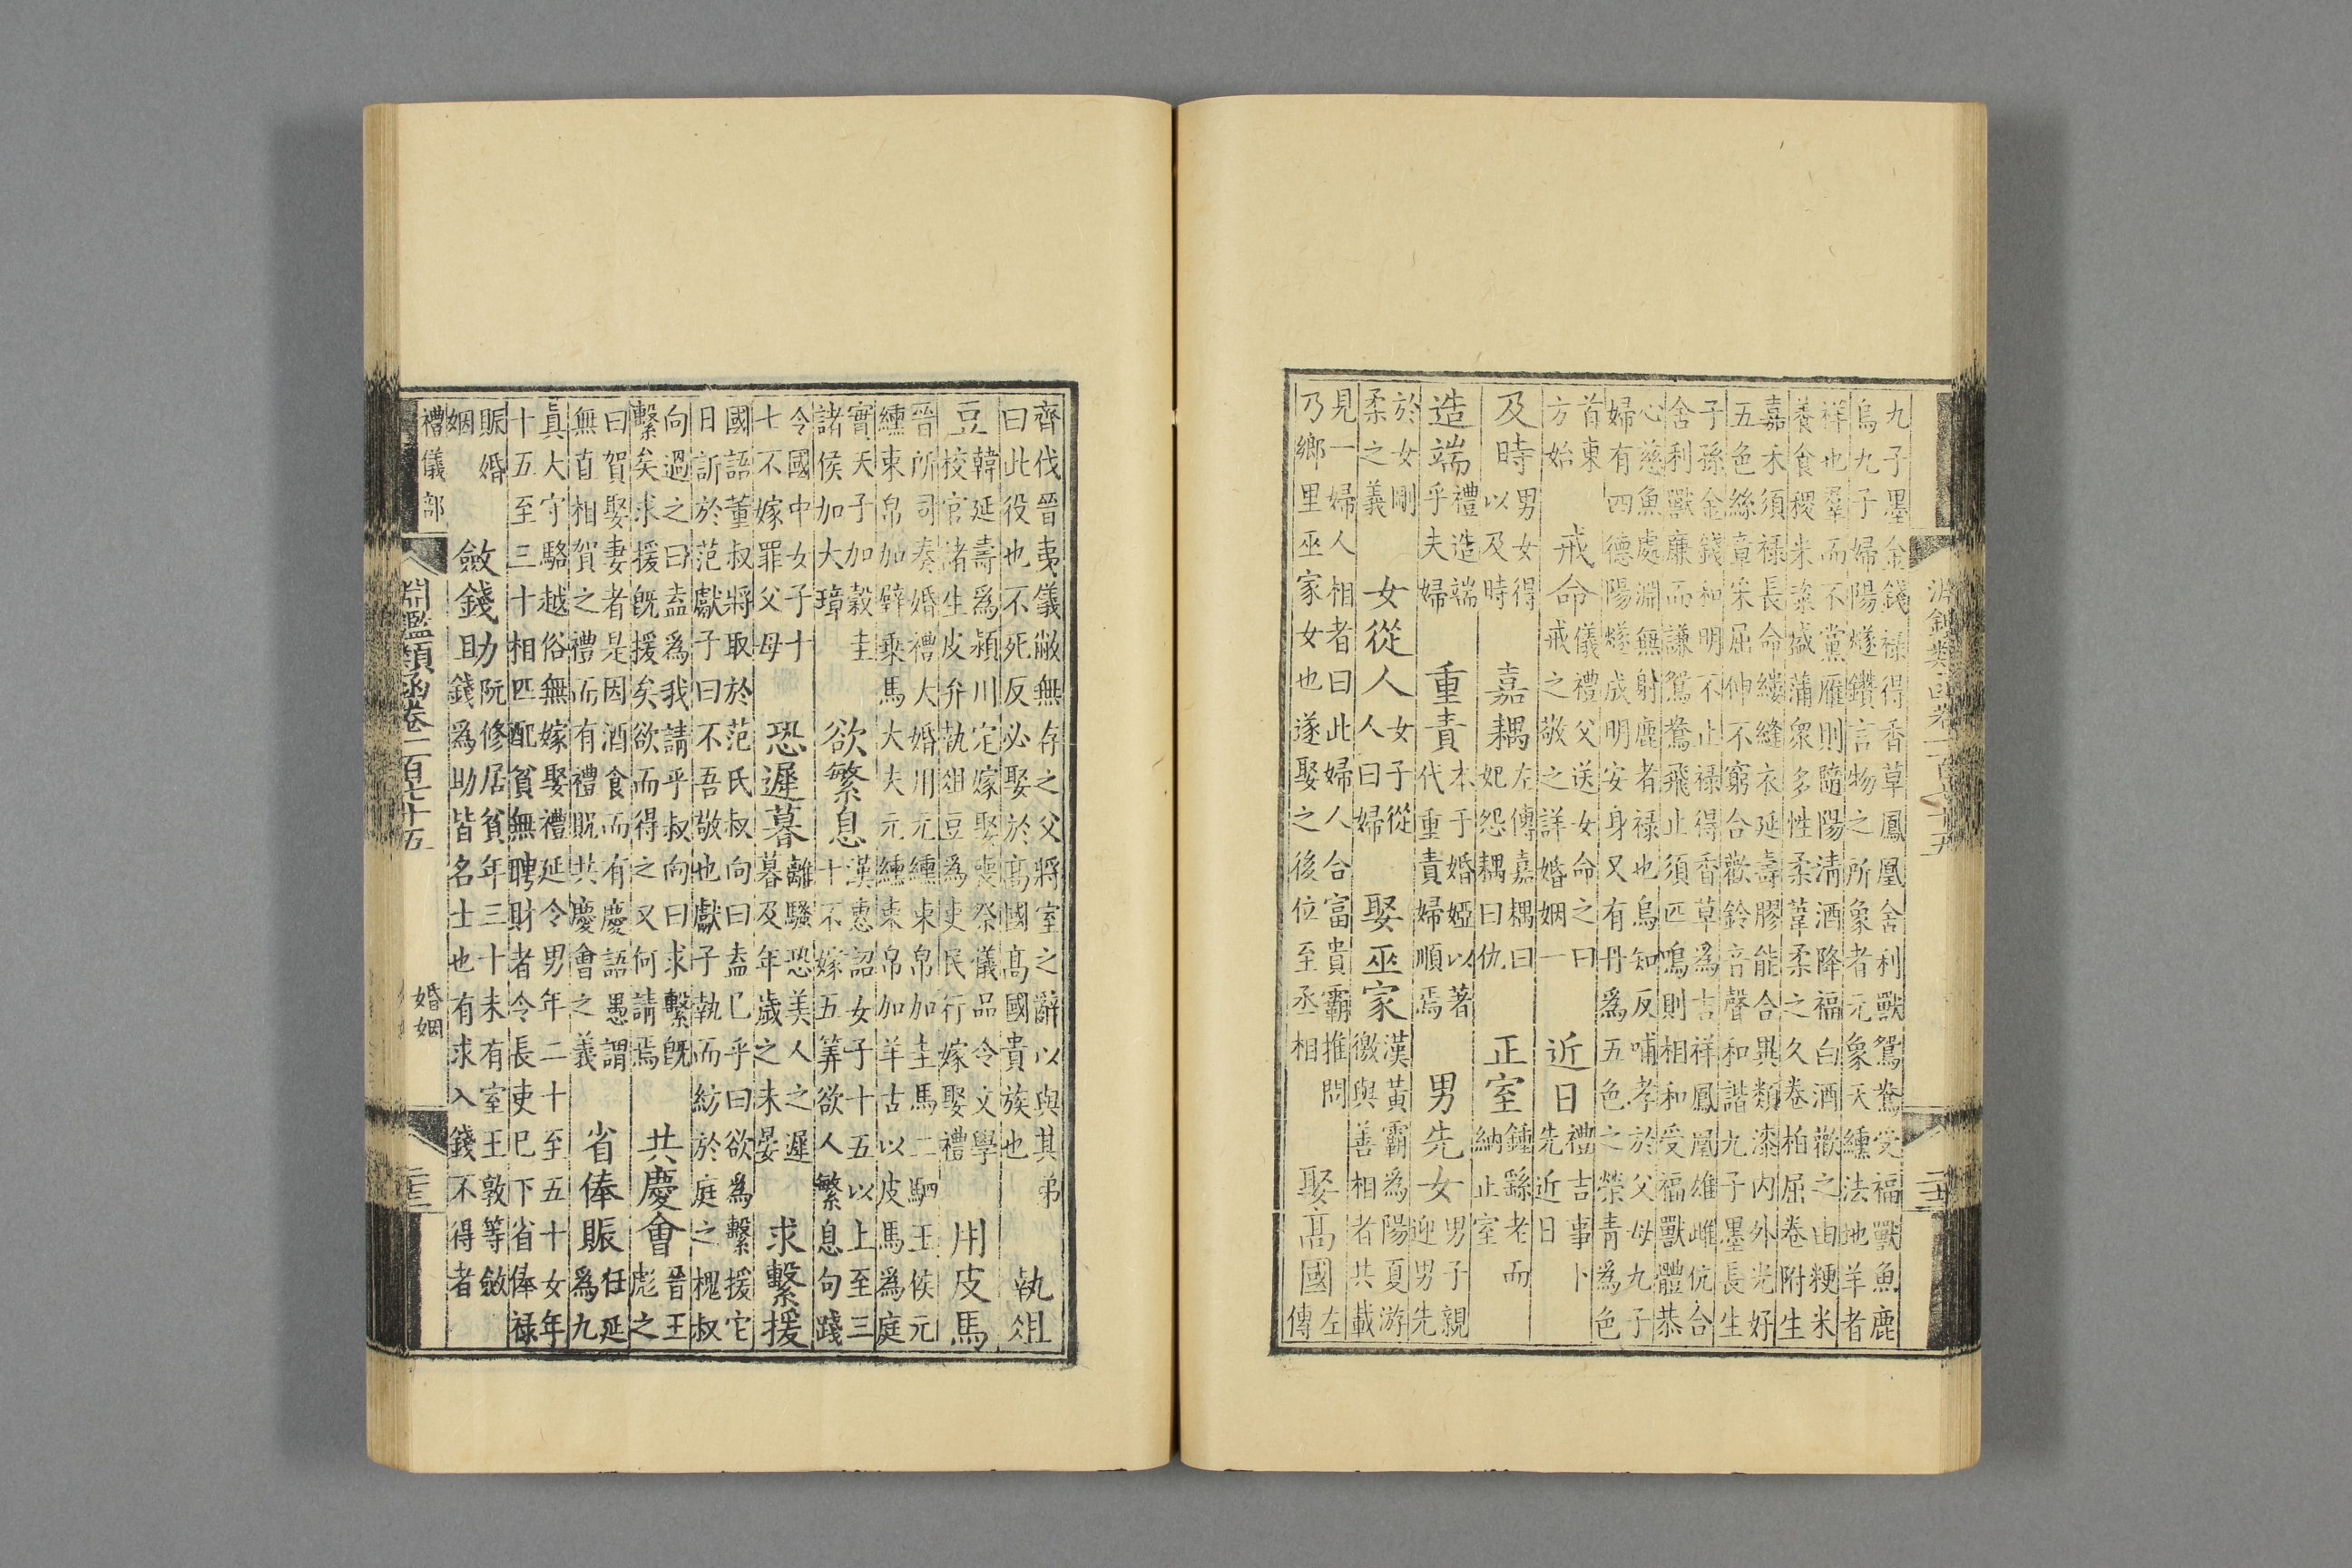 九子墨金錢祿得香草鳳凰舍利獸鴛鴦受福獸魚鹿
烏九子婦陽燧鑽言物之所象者元象天纁法地羊者
祥也羣而不黨雁則隨陽清酒降福白酒歡之由粳米
養食稷米粢盛蒲衆多性柔葦柔之久卷柏屈卷附生
嘉禾須祿長命縷縫衣延壽膠能合異類漆內外光好
五色絲章采屈伸不窮合歡鈴音聲和諧九子墨長生
子孫金錢和明不止祿得香草爲吉祥鳳凰雄雌伉合
舍利獸廉而謙鴛鴦飛止須匹鳴則相和受福獸體恭
心慈魚處淵無射鹿者祿也烏知反哺孝於父母九子
婦有四德陽燧成明安身又有丹爲五色之榮青為色
首東方始 戒命 儀禮父送女命之曰戒之敬之詳婚姻一 近日 禮吉事卜先近日
及時 男女得以及時 嘉耦 左傳嘉耦曰妃怨耦曰仇 正室 鍾繇老而納止室
造端 禮造端乎夫婦 重責 本于婚婭以著代重責婦順焉 男先女 男子親迎男先
於女剛柔之義 女從人 女子從人人曰婦 娶巫家 漢黃霸為陽夏游徼與善相者共載
見一婦人相者曰此婦人合富貴霸推問乃鄉里巫家女也遂娶之後位至丞相 娶高國 左傳
齊伐晉夷儀敝無存之父將室之辭以與其弟曰此役也不死反必娶於高國高國貴族也 執俎
豆 韓延壽爲潁川定嫁娶喪祭儀品令文學校官諸生皮弁執俎豆爲吏民行嫁娶禮 用皮馬
晉所司奏婚禮大婚用元纁束帛加圭馬二駟王侯元
纁束帛加璧乘馬大夫元纁束帛加羊古以皮馬爲庭
實天子加穀圭諸侯加大璋 欲繁息 漢惠詔女子十五以上至三十不嫁五筭欲人繁息句踐
令國中女子十七不嫁罪父母 恐遲暮 離騷恐美人之遲暮及年歲之未晏 求繫援
國語董叔將取於范氏叔向曰盍已乎曰欲爲繫援它
日訴於范獻子曰不吾敬也獻子執而紡於庭之槐叔
向過之曰盍爲我請乎叔向曰求繫既繫矣求援既援矣欲而得之又何請焉 共慶會 晉王彪之
曰賀娶妻者是因酒食而有慶語愚謂無直相賀之禮而有禮既共慶會之義 省俸賑 任延爲九
眞大守駱越俗無嫁娶禮延令男年二十至五十女年
十五至三十相匹配貧無聘財者令長吏已下省俸祿
賑婚姻 斂錢 助阮修居貧年三十未有室王敦等斂且錢爲助皆名士也有求入錢不得者
禮儀部 婚姻
淵鑑類函卷一百七十五